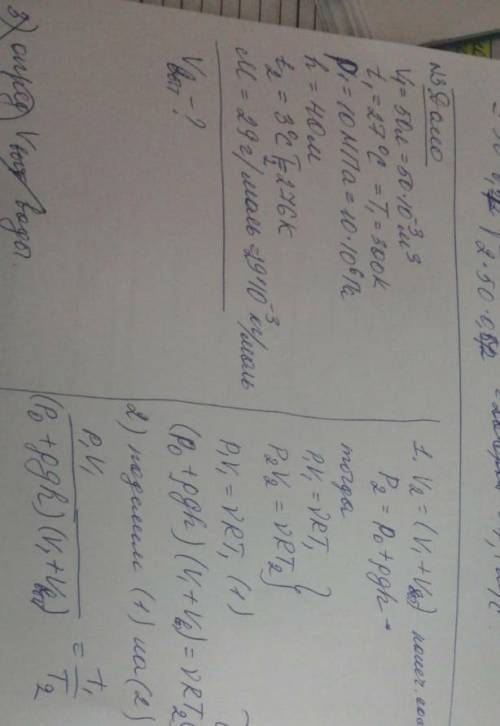 2·50·0,
№3 Дано
V₁ = 50л = 50·10⁻³ м³
t₁ = 27°C = T₁ = 300К
P₁ = 10 МПа = 10·10⁶ Па
h = 40м
t₂ = 3°C T₂ = 276К
M = 29г/моль = 29·10⁻³ кг/моль
V выт - ?
1. V₂ = (V₁ + V выт)
P₂ = P₀ + ρgh -
P₁V₁ = νRT₁ }
P₂V₂ = νRT₂ }
тогда
P₁V₁ = νRT₁ (1)
(P₀ + ρgh)(V₁ + V₂) = νRT₂
2) поделим (1) на (2)
P₁V₁ / (P₀ + ρgh)(V₁ + V выт) = T₁ / T₂
3) опред V выт воды.